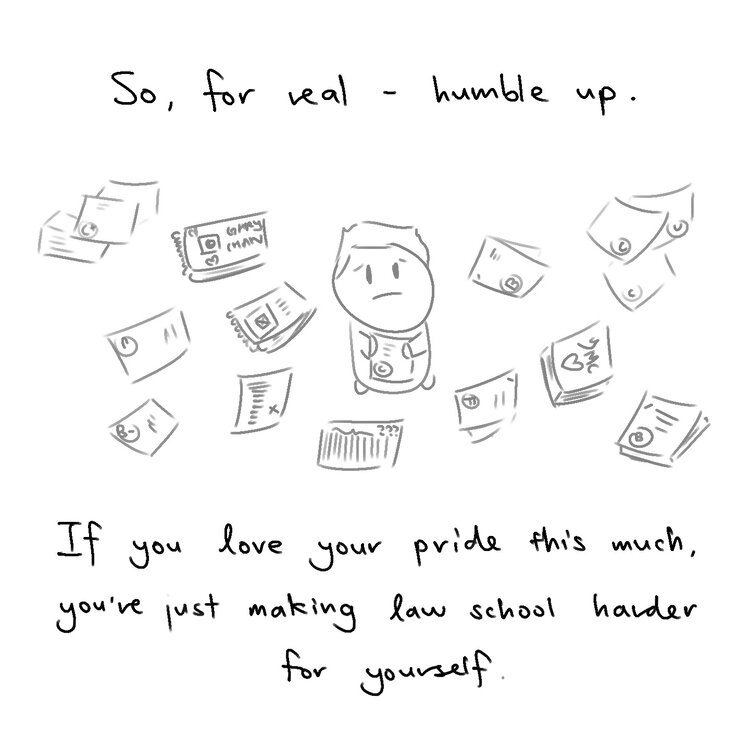 So, for real - humble up.
C+
C
B
C
B-
X
???
B
C
If you love your pride this much,
you're just making law school harder
for yourself.